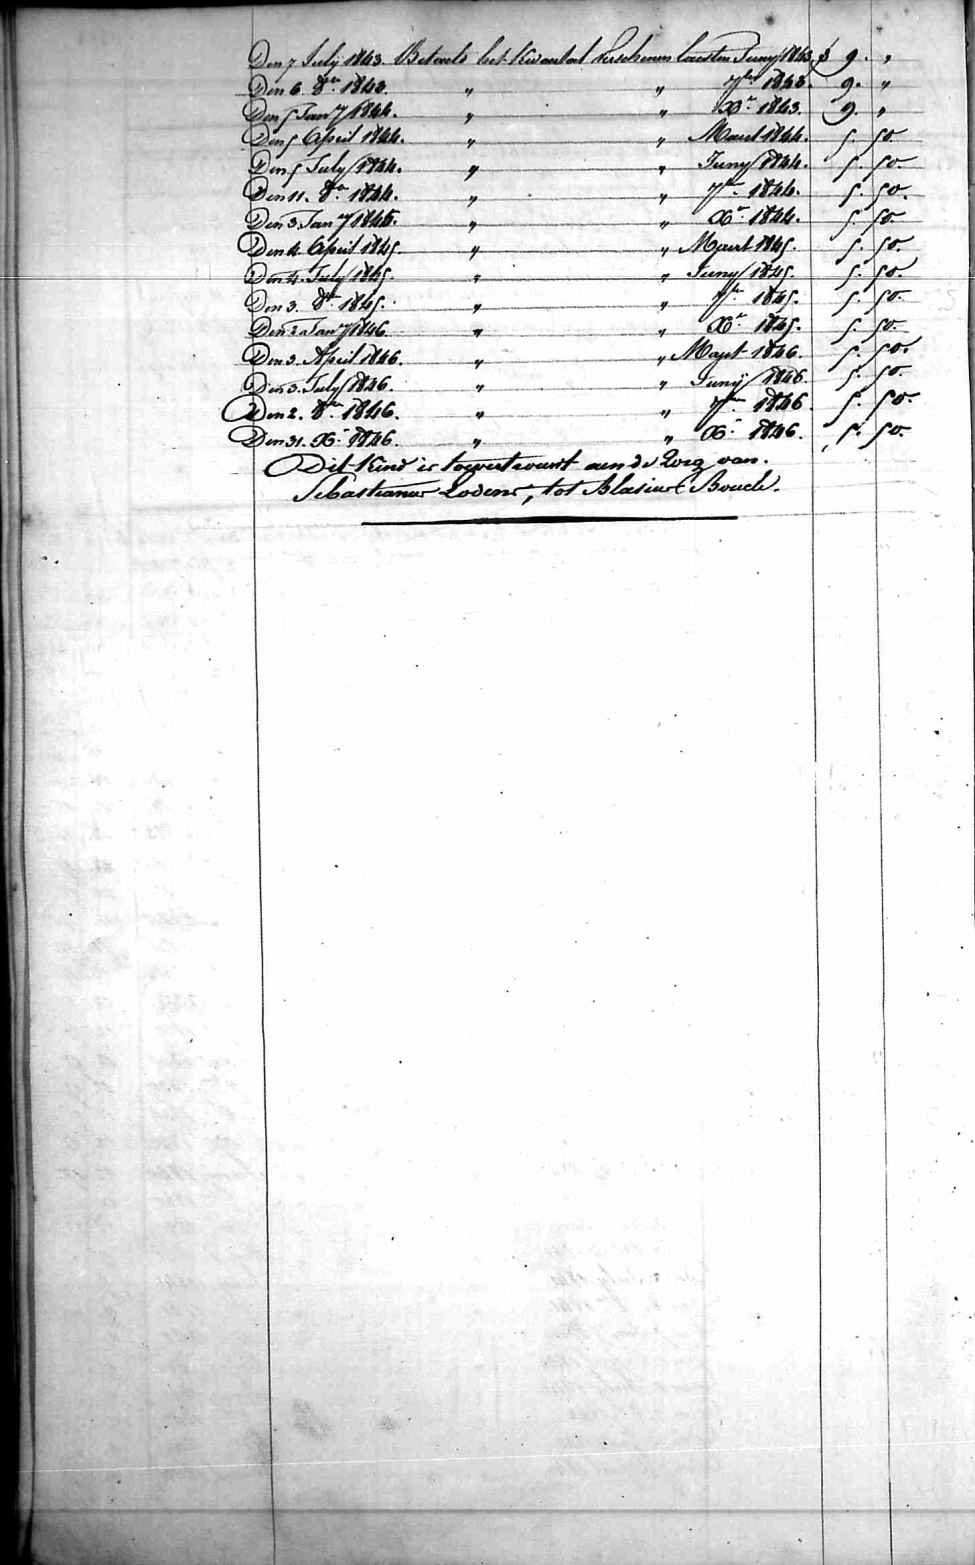 Den 7 July 1843. Betaelt het Kwartael verschenen laesten Juny 1843. f 9. "
Den 6. 8er 1843. " " 7ber 1843. 9. "
Den 5 Jany 1844. " " Xr 1843. 9. "
Den 5 April 1844. " " Maert 1844. 5. 50.
Den 5 July 1844. " " Juny 1844. 5. 50.
Den 11. 8er 1844. " " 7ber 1844. 5. 50.
Den 3 Jany 1845. " " Xr 1844. 5. 50.
Den 4. April 1845. " " Maert 1845. 5. 50.
Den 4. July 1845. " " Juny 1845. 5. 50.
Den 3. 8er 1845. " " 7ber 1845. 5. 50.
Den 2 Jany 1846. " " Xr 1845. 5. 50.
Den 3. April 1846. " " Maert 1846. 5. 50.
Den 3. July 1846. " " Junÿ 1846. 5. 50.
Den 2. 8er 1846. " " 7ber 1846. 5. 50.
Den 31. Xr 1846. " " Xr 1846. 5. 50.
Dit Kind is toevertrouwt aen de Zorg van
Sebastianus Lodens, tot Blasius Boucle.